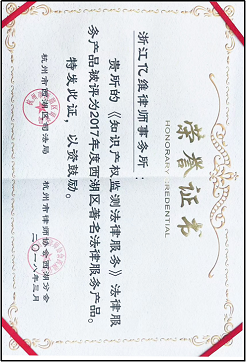 荣誉证书
HONORARY CREDENTIAL
浙江亿维律师事务所：
贵所的《知识产权监测法律服务》法律服
务产品被评为2017年度西湖区著名法律服务产品。
特发此证，以资鼓励。
杭州市西湖区司法局
杭州市律师协会西湖分会
二〇一八年三月